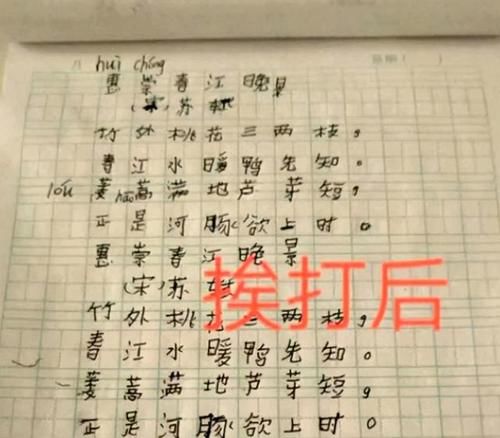 huì chóng
惠崇春江晚景
(宋)苏轼
竹外桃花三两枝,
春江水暖鸭先知。
lóu hāo
蒌蒿满地芦芽短,
正是河豚欲上时。
惠崇春江晚景
(宋)苏轼
竹外桃花三两枝,
春江水暖鸭先知。
蒌蒿满地芦芽短,
正是河豚欲上时。
挨打后